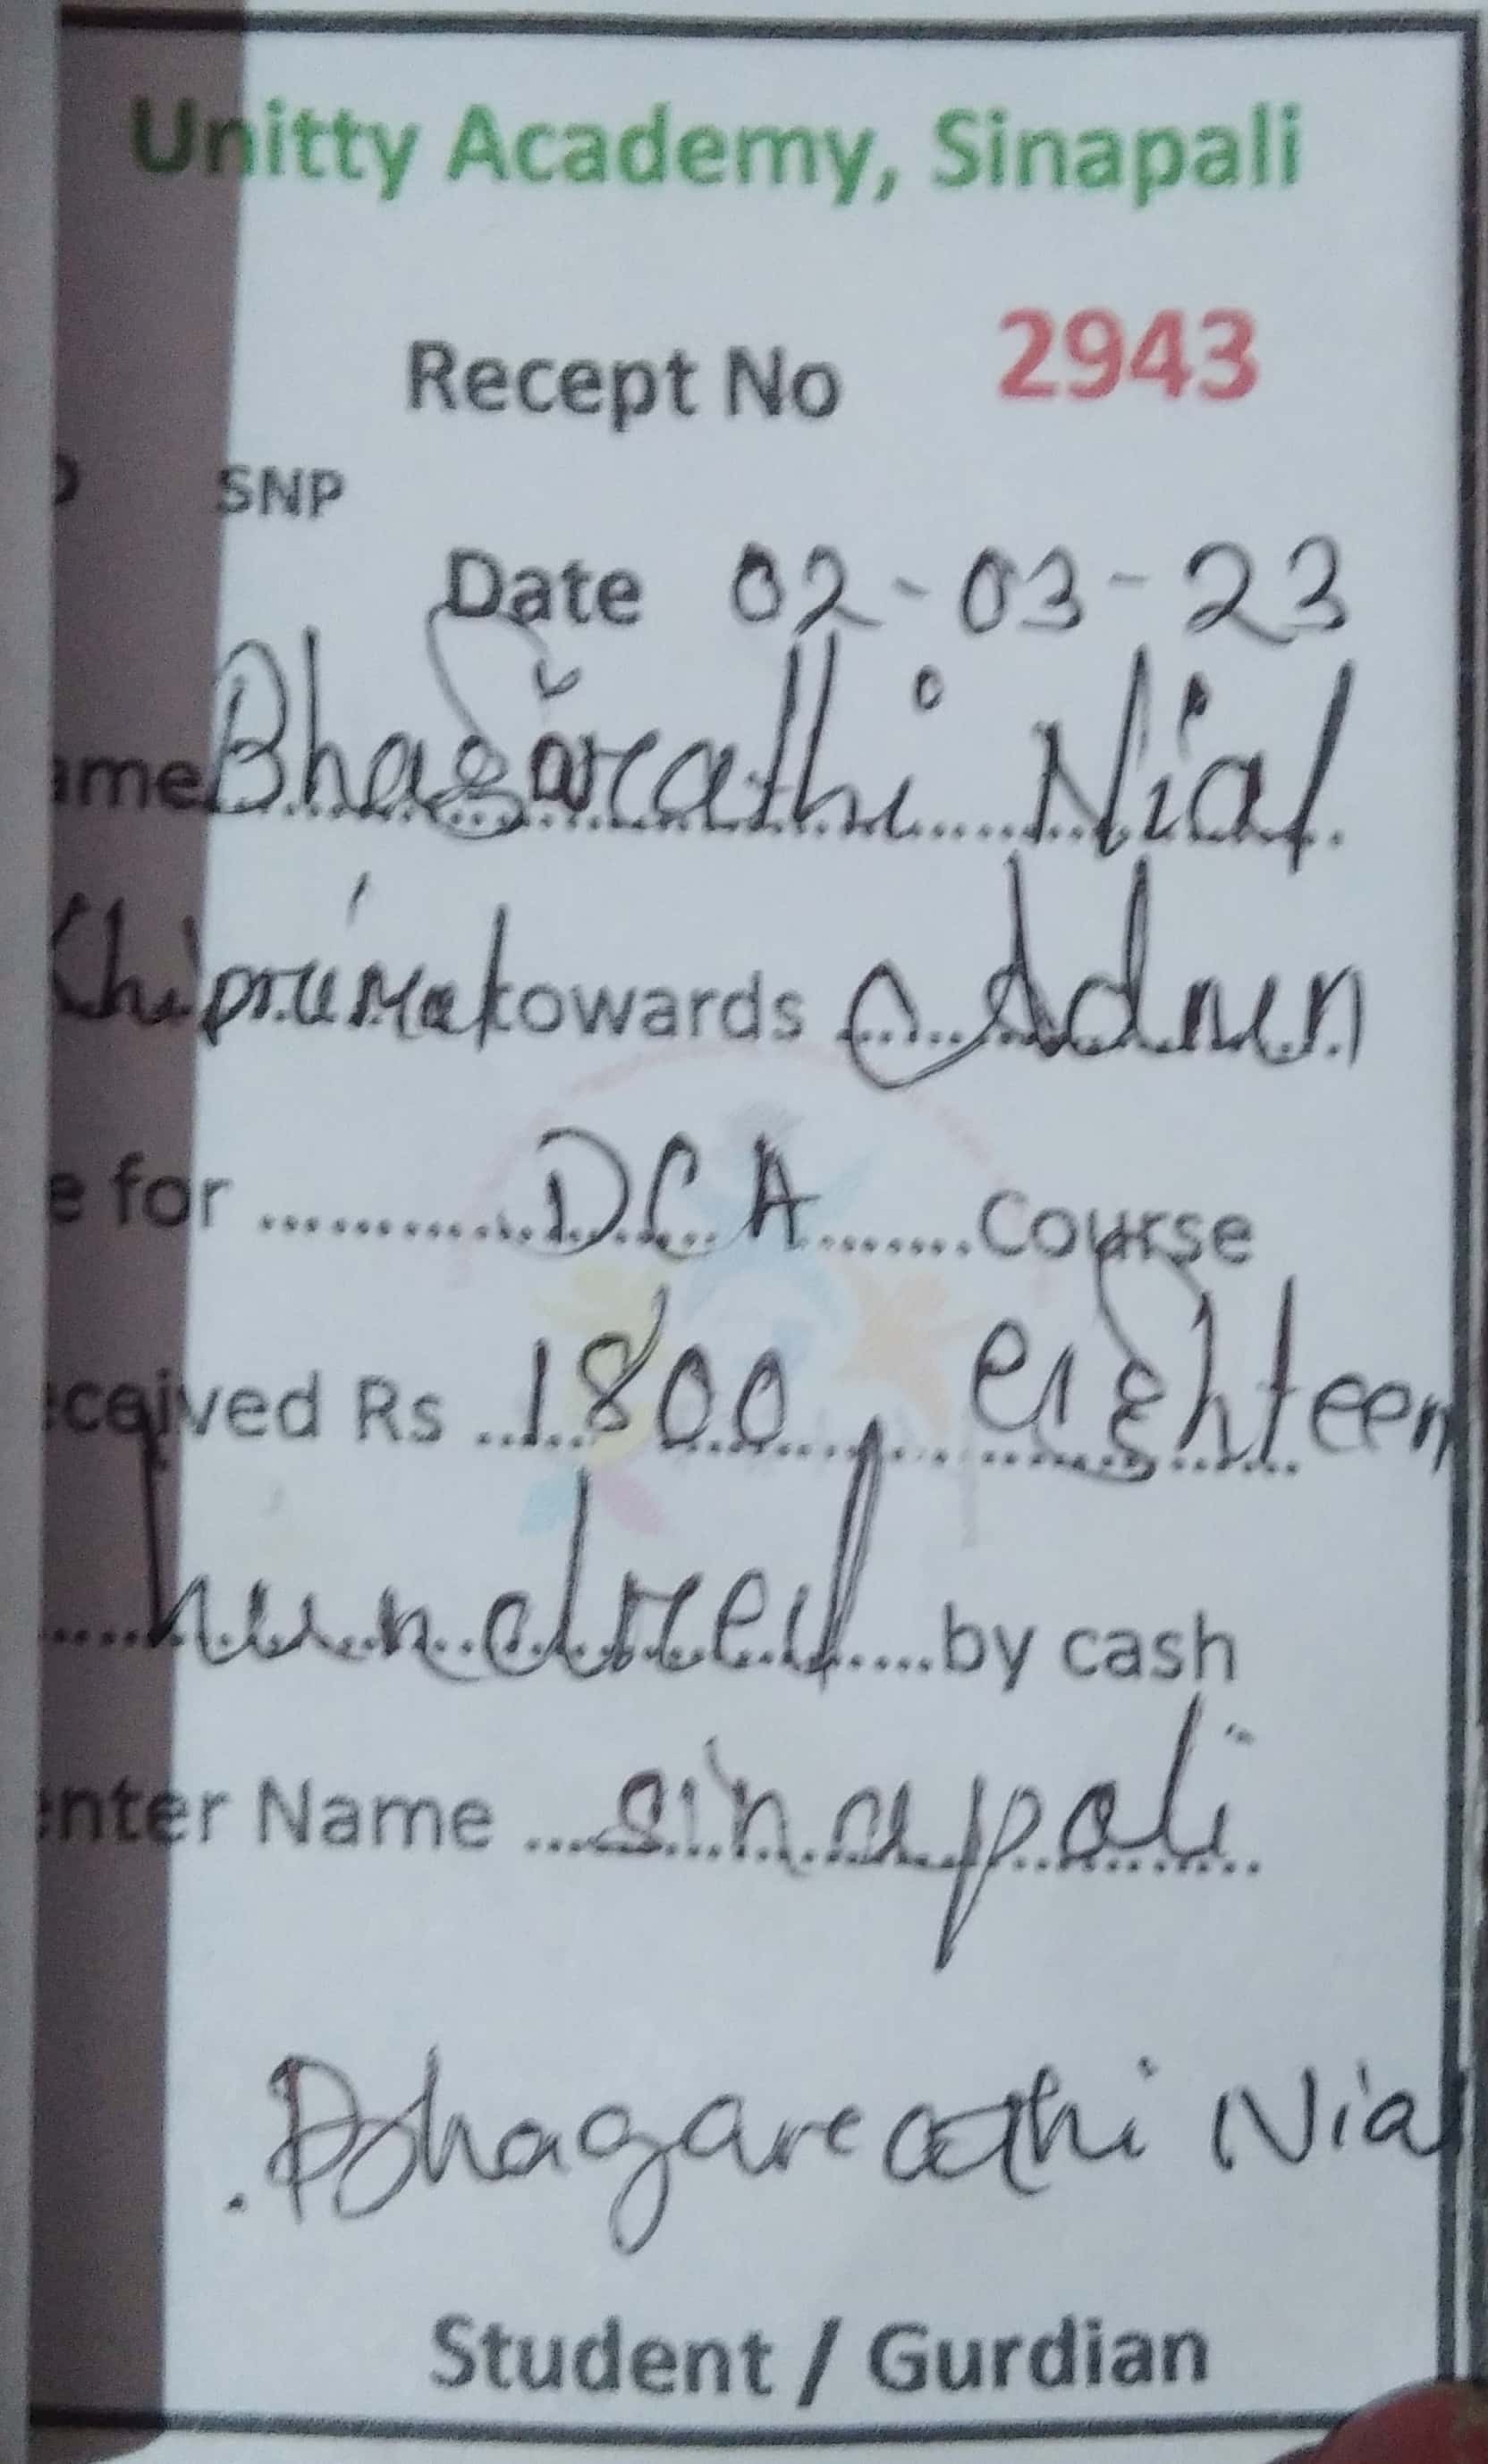 Unitty Academy, Sinapali
Recept No 2943
SNP
Date 02-03-23
ame Bhagarathi Nial
towards Admn
e for ............ DCA ........ Course
ceived Rs ..1800, eighteen
hundred ..... by cash
nter Name ... sinapali
Bhagarathi Nial
Student / Gurdian